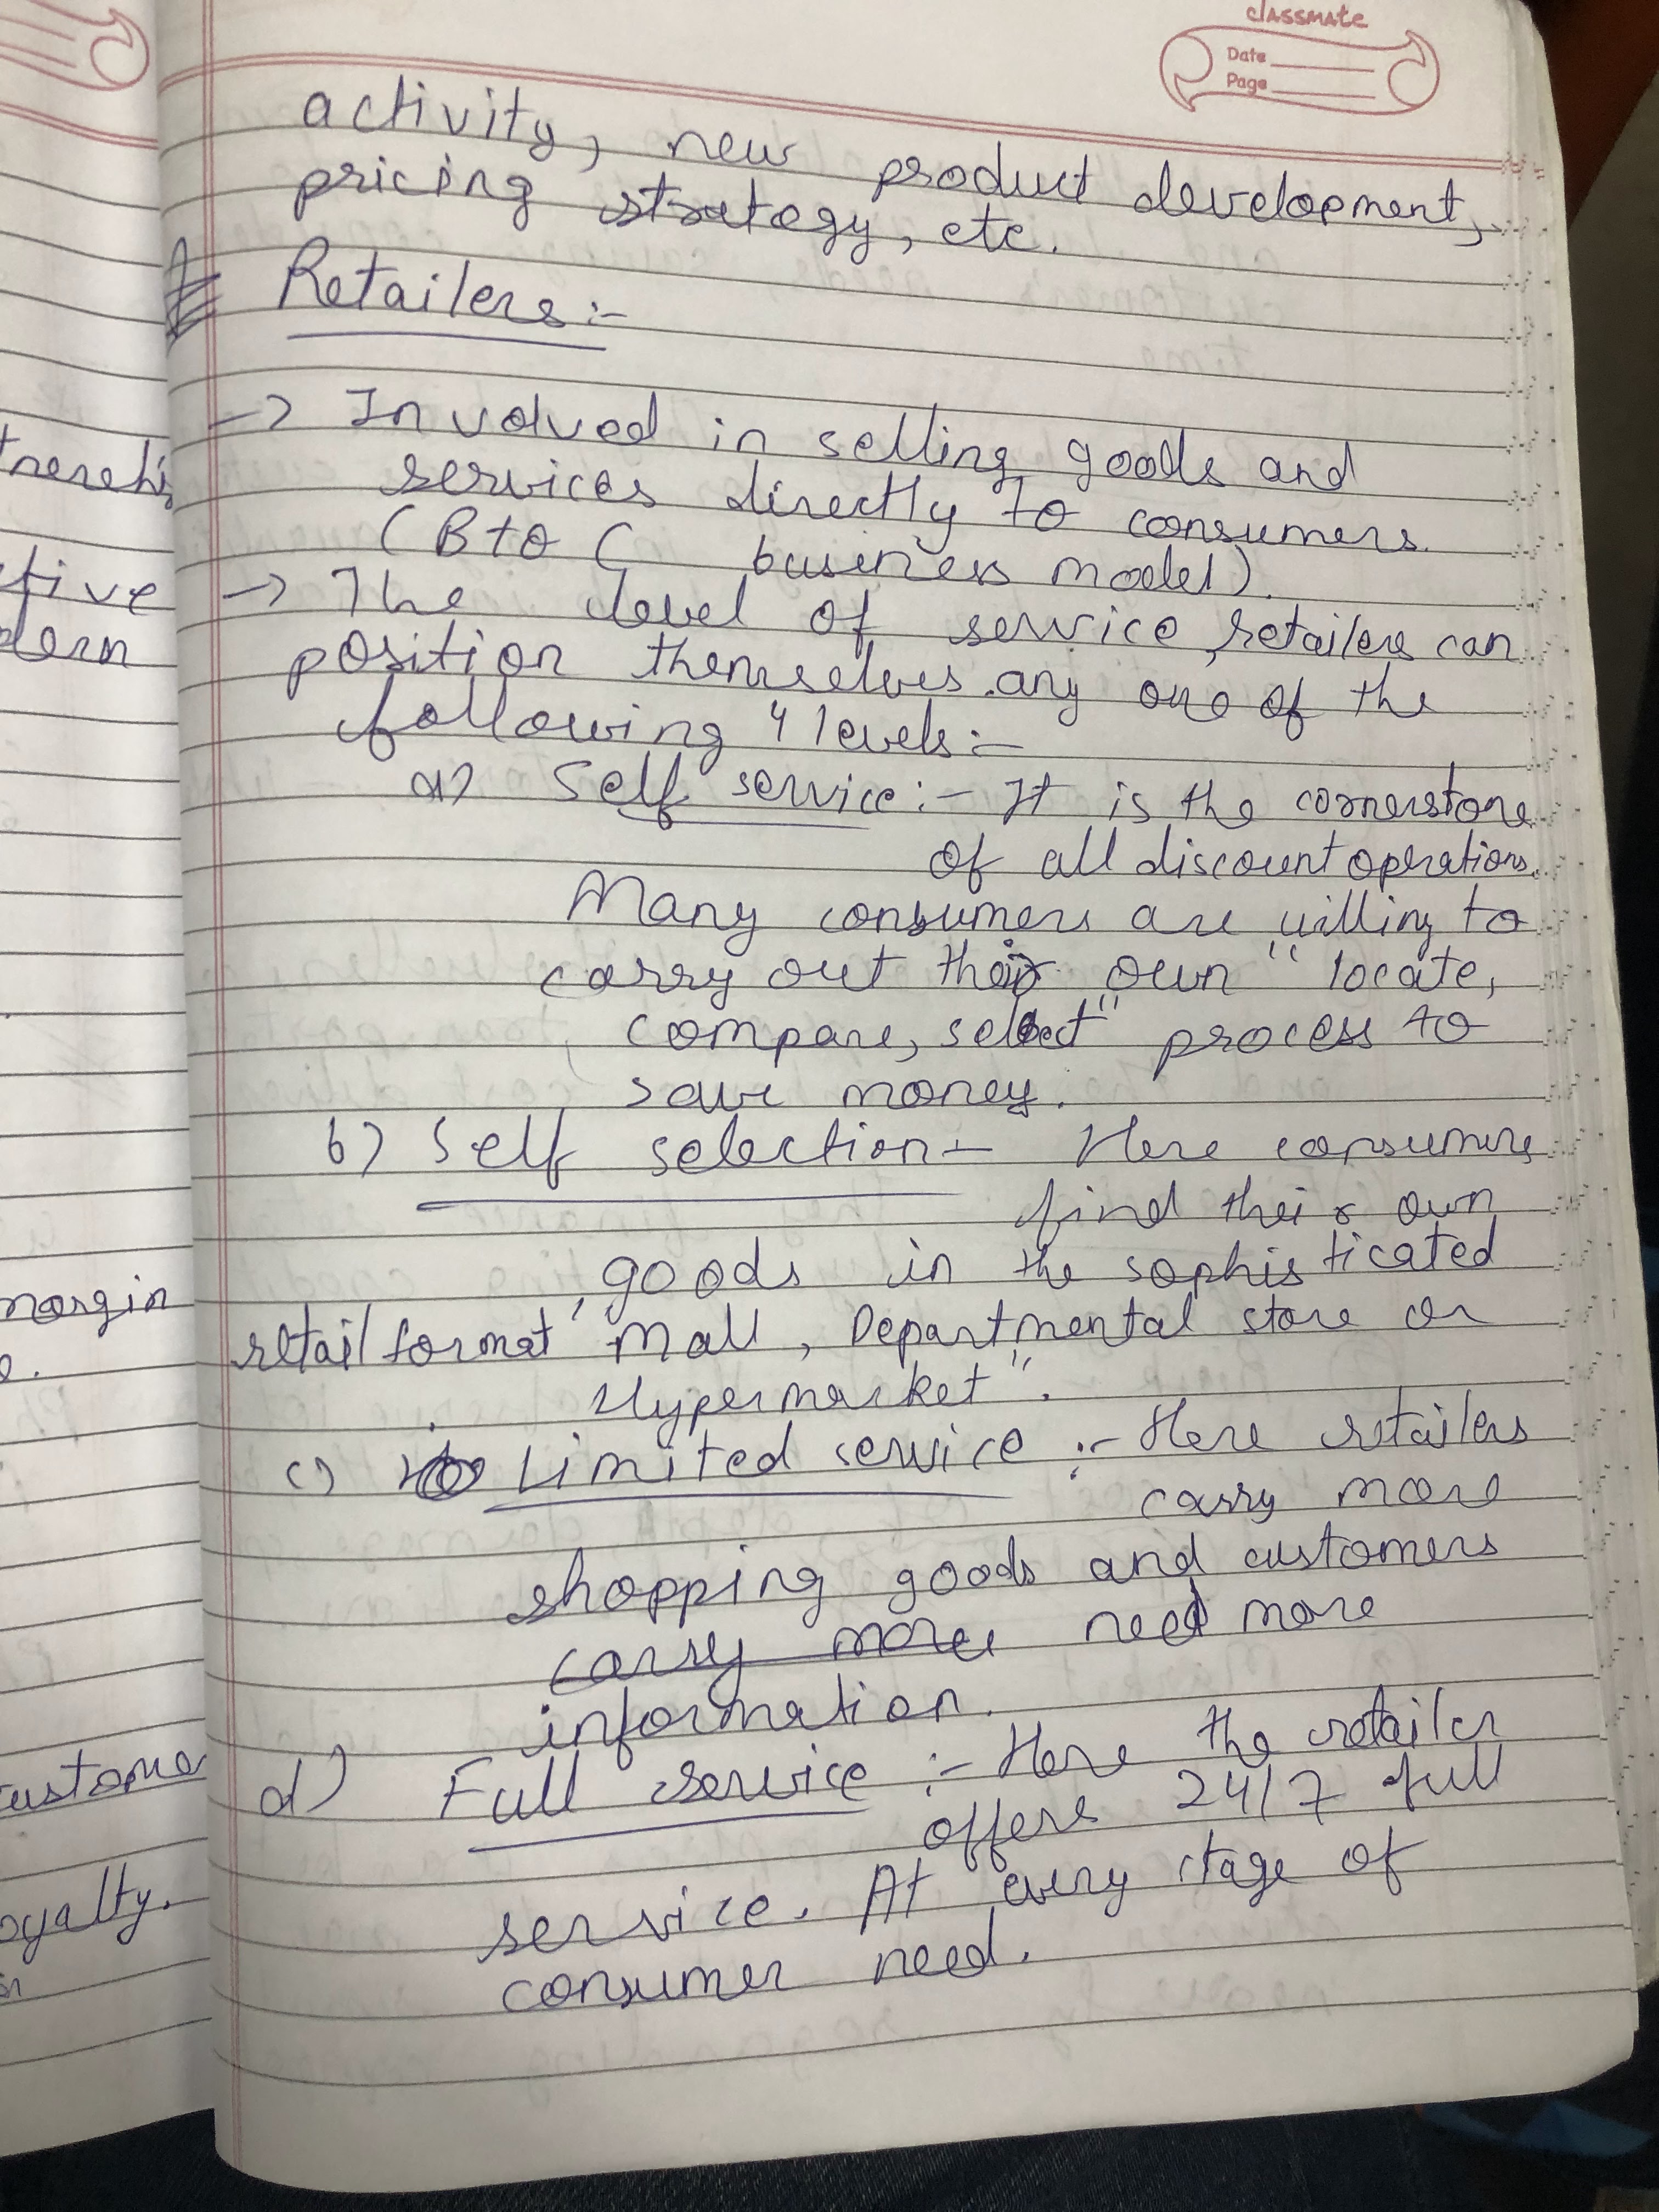 classmate
Date
Page
activity, new product development,
pricing stratogy, etc.
Retailers:-
-> Involved in selling goods and
services directly to consumers.
(B to C business model).
-> The level of service, retailers can
position themselves any one of the
following 4 levels:-
a) Self service:- It is the cornerstone
of all discount operations.
Many consumers are willing to
carry out their own "locate,
compare, select" process to
save money.
b) Self selection- Here consumers
find their own
goods in the sophisticated
retail format "Mall, Departmental store or
Hypermarket".
c) Limited service :- Here retailers
carry more
shopping goods and customers
carry more need more
information.
d) Full service :- Here the retailer
offers 24/7 full
service. At every stage of
consumer need.
tive
margin
custome
oyalty.